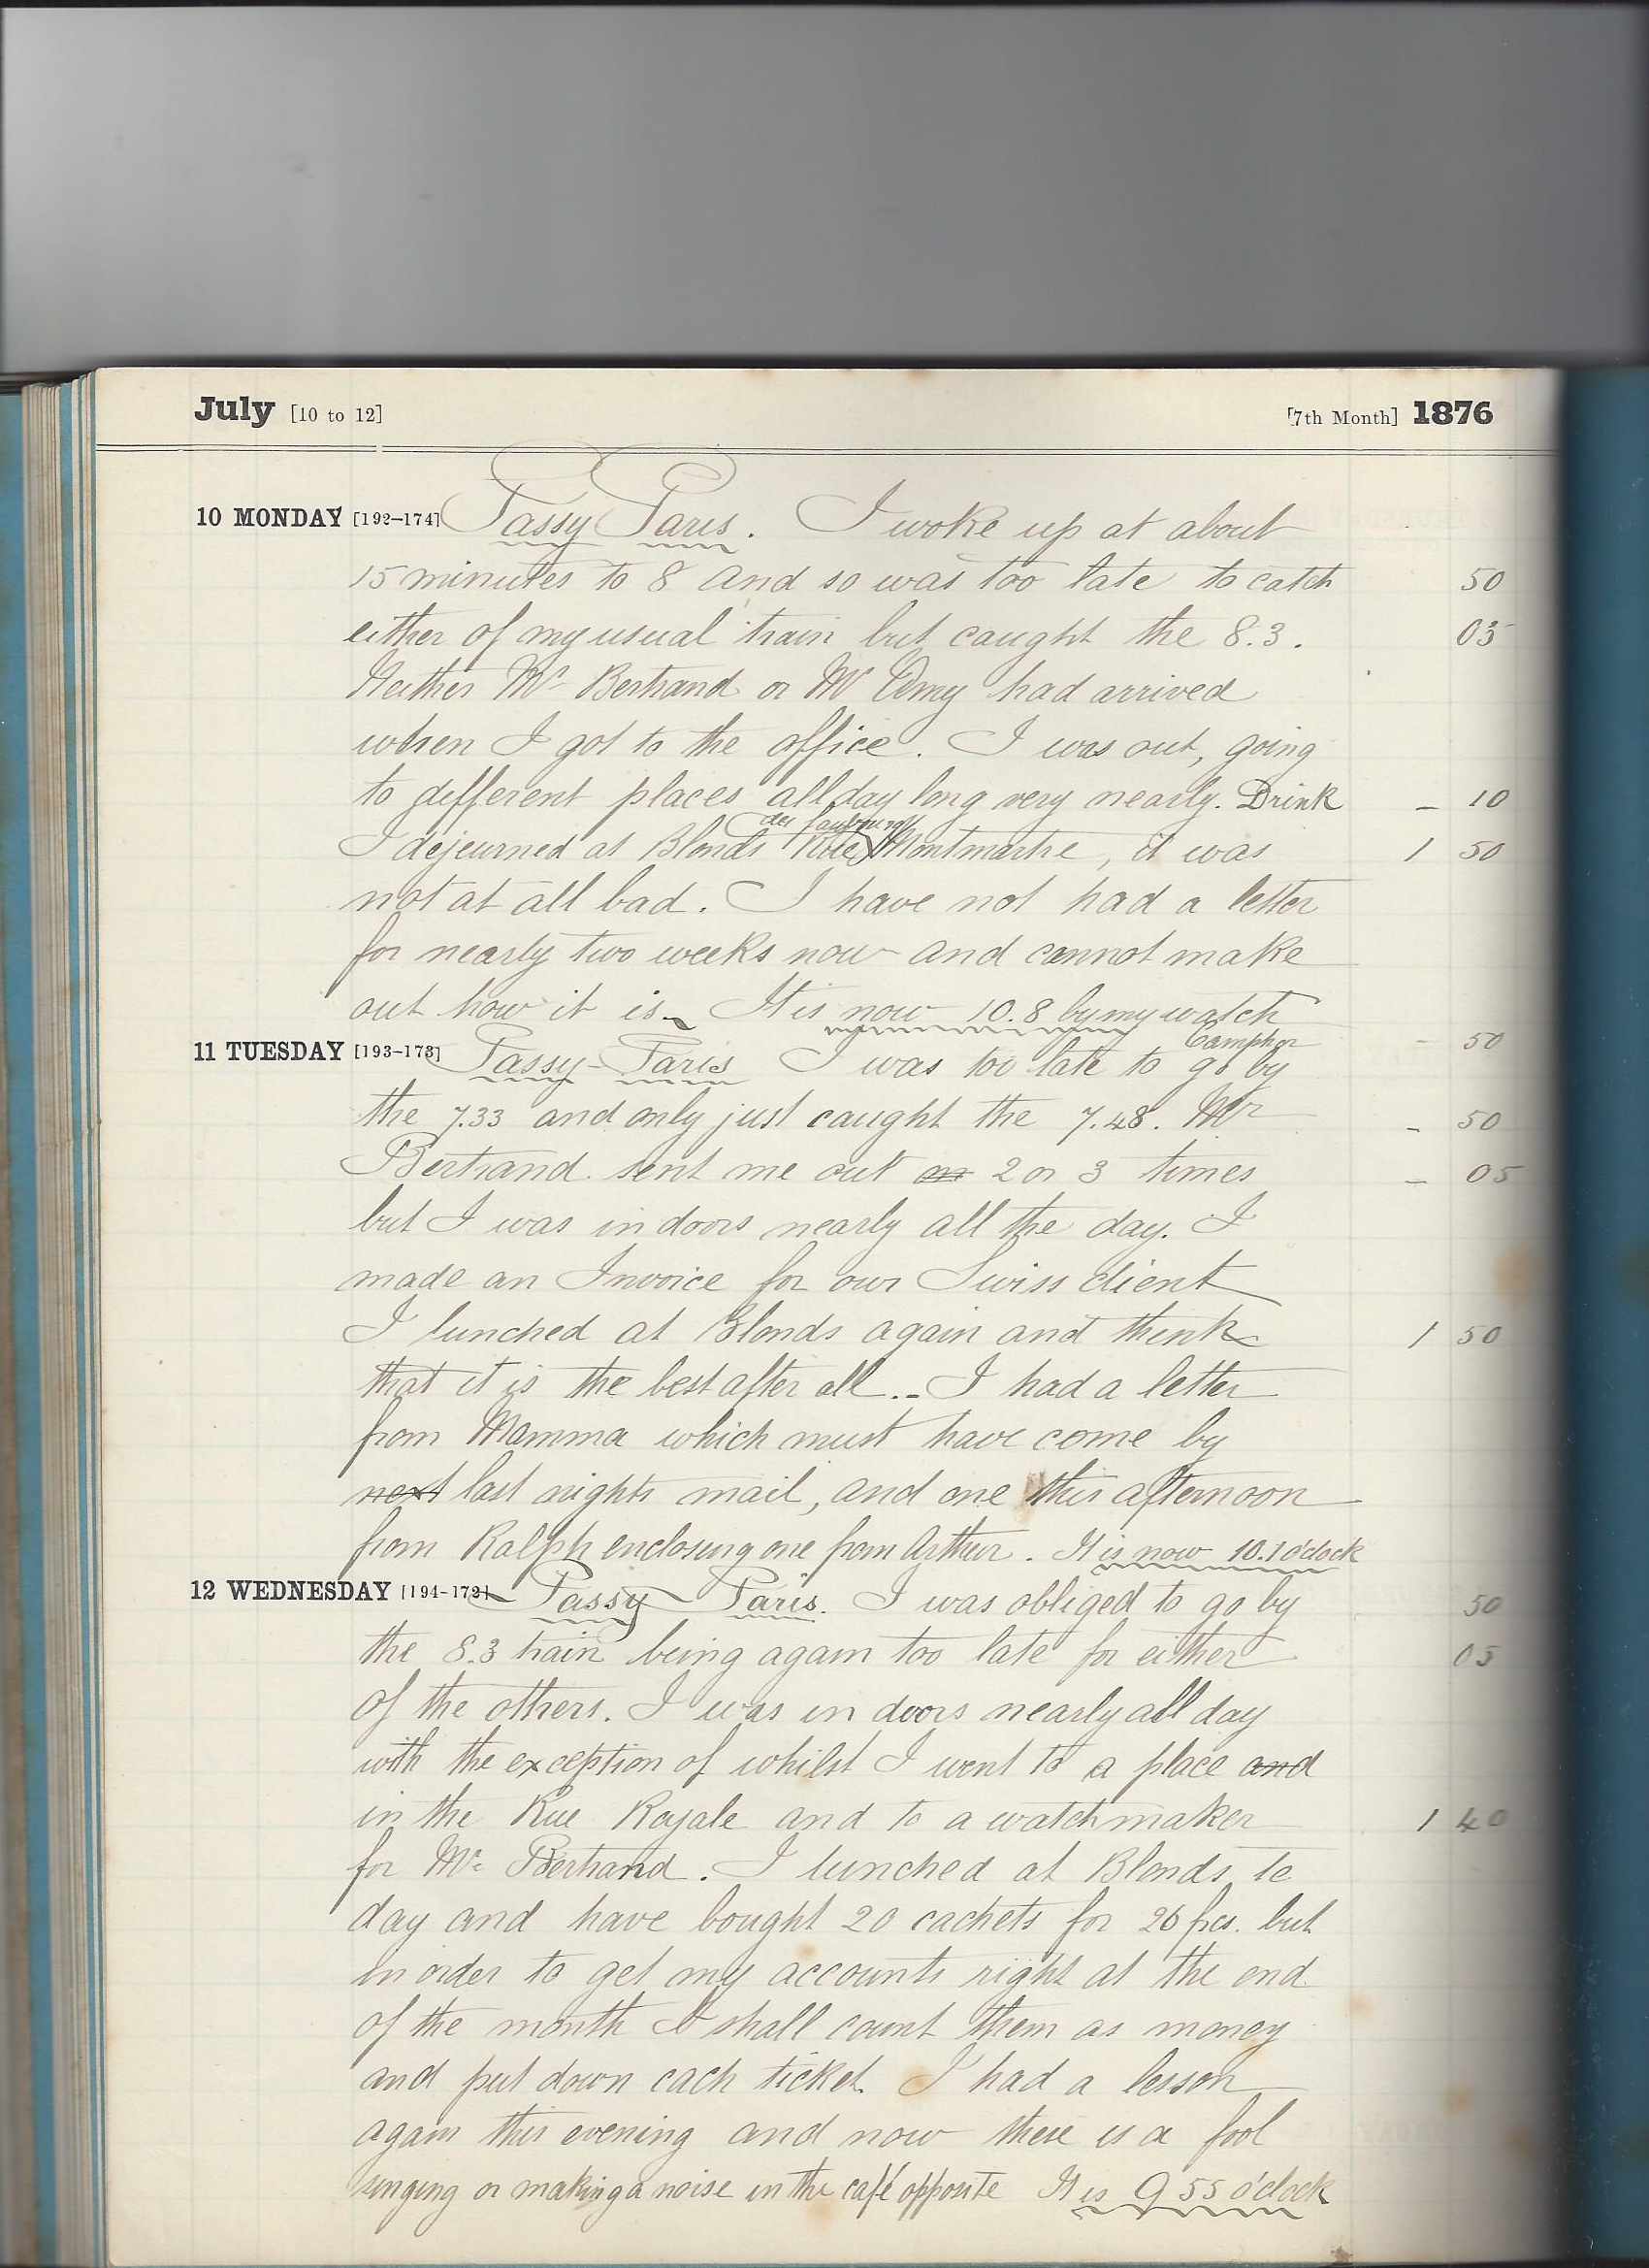 July [10 to 12] [7th Month] 1876
10 MONDAY [192–174] Passy Paris. I woke up at about
15 minutes to 8 and so was too late to catch 50
either of my usual train but caught the 8.3. 05
Neither Mr Bertrand or Mr Amy had arrived
when I got to the office. I was out, going
to different places all day long very nearly. Drink – 10
des faubourg
I dejeurned at Blonds Rue Montmartre, it was 1 50
not at all bad. I have not had a letter
for nearly two weeks now and cannot make
out how it is. It is now 10.8 by my watch
Camphor – 50
11 TUESDAY [193–173] Passy – Paris I was too late to go by
the 7.33 and only just caught the 7.48. Mr – 50
Bertrand sent me out on 2 or 3 times – 05
but I was in doors nearly all the day. I
made an Invoice for our Swiss client
I lunched at Blonds again and think 1 50
that it is the best after all.– I had a letter
from Mamma which must have come by
next last nights mail, and one this afternoon
from Ralph enclosing one from Arthur. It is now 10.1 o'clock
12 WEDNESDAY [194–172] Passy Paris. I was obliged to go by 50
the 8.3 train being again too late for either 05
of the others. I was in doors nearly all day
with the exception of whilst I went to a place and
in the Rue Royale and to a watchmaker 1 40
for Mr. Bertrand. I lunched at Blonds to
day and have bought 20 cachets for 26 frcs. but
in order to get my accounts right at the end
of the month I shall count them as money
and put down each ticket. I had a lesson
again this evening and now there is a fool
singing or making a noise in the café opposite It is 9 55 o'clock